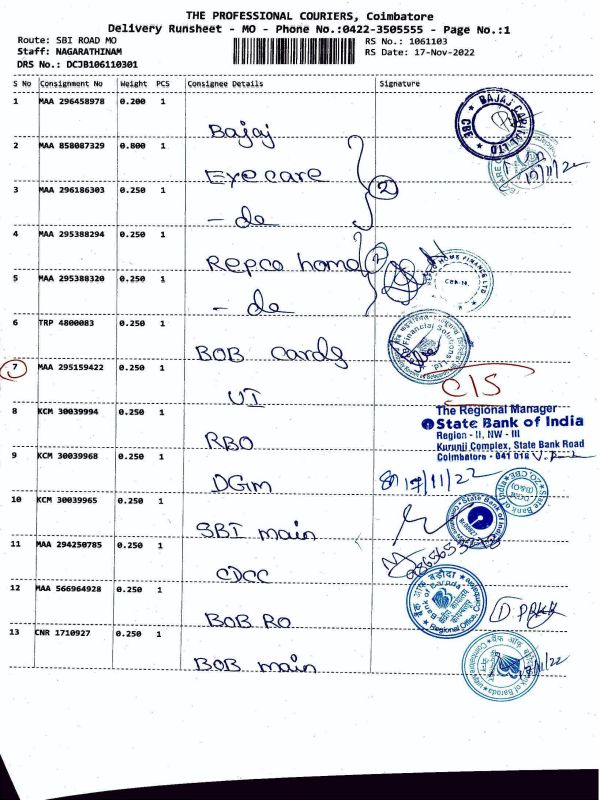 THE PROFESSIONAL COURIERS, Coimbatore
Delivery Runsheet - MO - Phone No.:0422-3505555 - Page No.:1
Route: SBI ROAD MO
RS No.: 1061103
Staff: NAGARATHINAM
RS Date: 17-Nov-2022
DRS No.: DCJB106110301
S No Consignment No Weight PCS Consignee Details Signature
1 MAA 296458978 0.200 1
Bajaj
BAJAJ CAPITAL LTD
CBE
2 MAA 858087329 0.800 1
Eye care
2
17/11/22
3 MAA 296186303 0.250 1
- do
4 MAA 295388294 0.250 1
Repco home
HOME FINANCE LTD
5 MAA 295388320 0.250 1
- do
6 TRP 4800083 0.250 1
BOB Cards
Financial Solutions Ltd.
7 MAA 295159422 0.250 1
UTI
C/S
8 KCM 30039994 0.250 1
RBO
The Regional Manager
State Bank of India
Region - II, NW - III
Kurunji Complex, State Bank Road
Coimbatore - 641 018
9 KCM 30039968 0.250 1
DGM
17/11/22
State Bank of India
10 KCM 30039965 0.250 1
SBI main
State Bank of India
11 MAA 294250785 0.250 1
CDCC
12 MAA 566964928 0.250 1
BOB RO
बैंक ऑफ़ बड़ौदा
Bank of Baroda
Regional Office
13 CNR 1710927 0.250 1
BOB main
Bank of Baroda
17/11/22